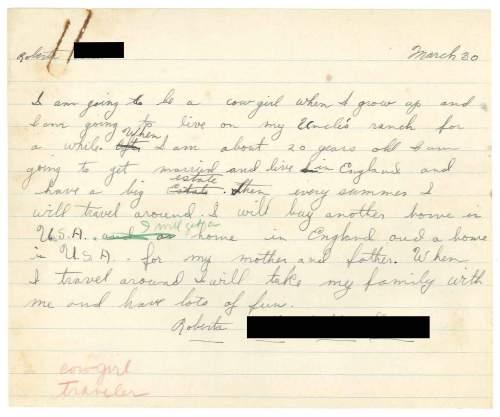 Roberta
March 30
I am going to be a cowgirl when I grow up and
I am going to live on my Uncle's ranch for
a while. When I am about 20 years old I am
going to get married and live in England and
have a big estate. Then every summer I
will travel around. I will buy another home in
U.S.A. and a I will get a home in England and a home
in U.S.A. for my mother and father. When
I travel around I will take my family with
me and have lots of fun.
Roberta
cowgirl
traveler